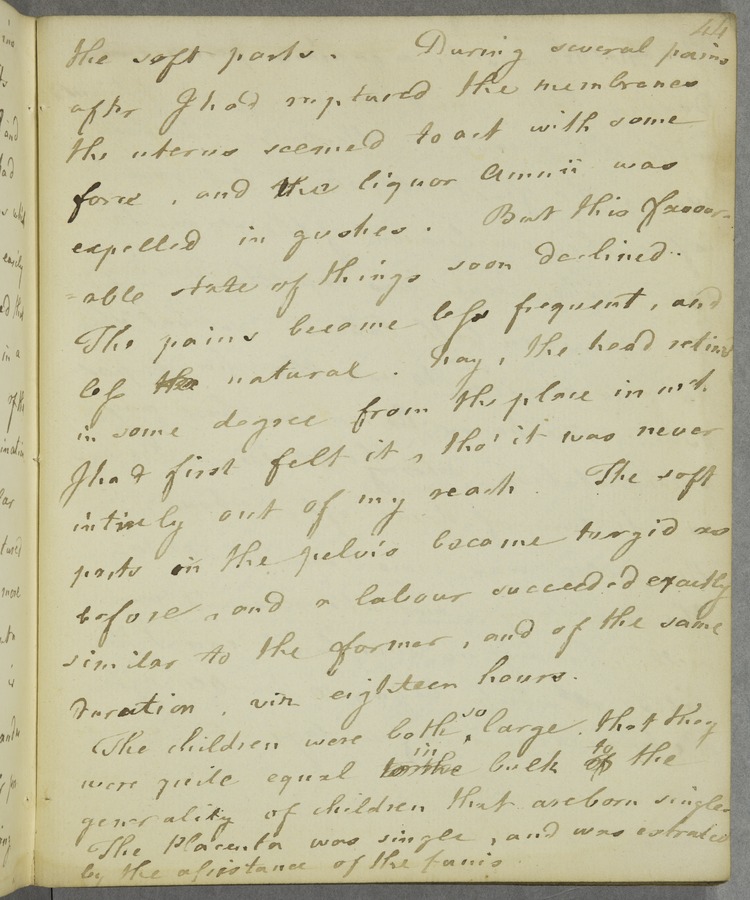 44
the soft parts. During several pains
after I had ruptured the membranes
the uterus seemed to act with some
force, and the liquor Amnii was
expelled in gushes. But this favour-
=able state of things soon declined.
The pains became less frequent, and
less the natural. Nay, the head retired
in some degree from the place in wch.
I had first felt it, tho' it was never
intirely out of my reach. The soft
parts in the pelvis became turgid as
before, and a labour succeeded exactly
similar to the former, and of the same
duration, viz eighteen hours.
The children were both so large, that they
were quite equal in bulk to the
generality of children that are born single.
The Placenta was single, and was extracted
by the assistance of the funis